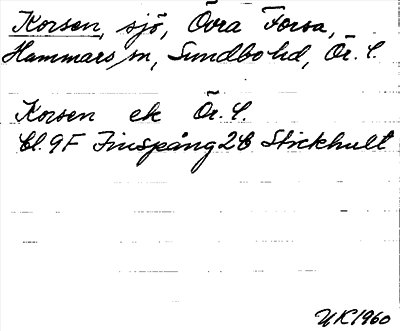 Korsen, sjö, Övra Forsa,
Hammars sn, Sundbo hd, Ör. L.
Korsen ek Ör. L.
Bl. 9F Finspång 2b Stickhult
UK 1960